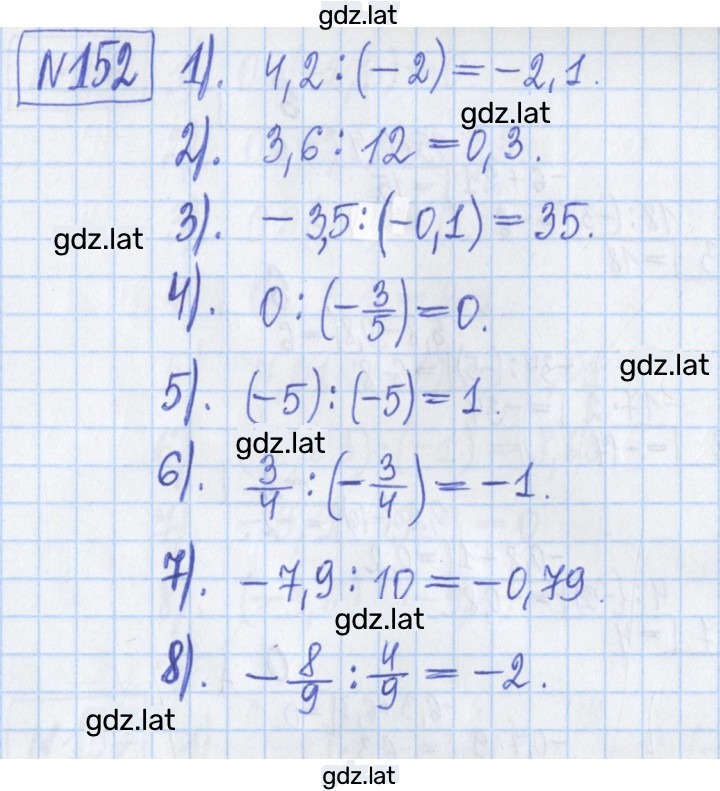 gdz.lat
№152 1). 4,2 : (−2) = −2,1.
gdz.lat
2). 3,6 : 12 = 0,3.
3). −3,5 : (−0,1) = 35.
gdz.lat
4). 0 : (−3/5) = 0.
gdz.lat
5). (−5) : (−5) = 1.
gdz.lat
6). 3/4 : (−3/4) = −1.
7). −7,9 : 10 = −0,79.
gdz.lat
8). −8/9 : 4/9 = −2.
gdz.lat
gdz.lat